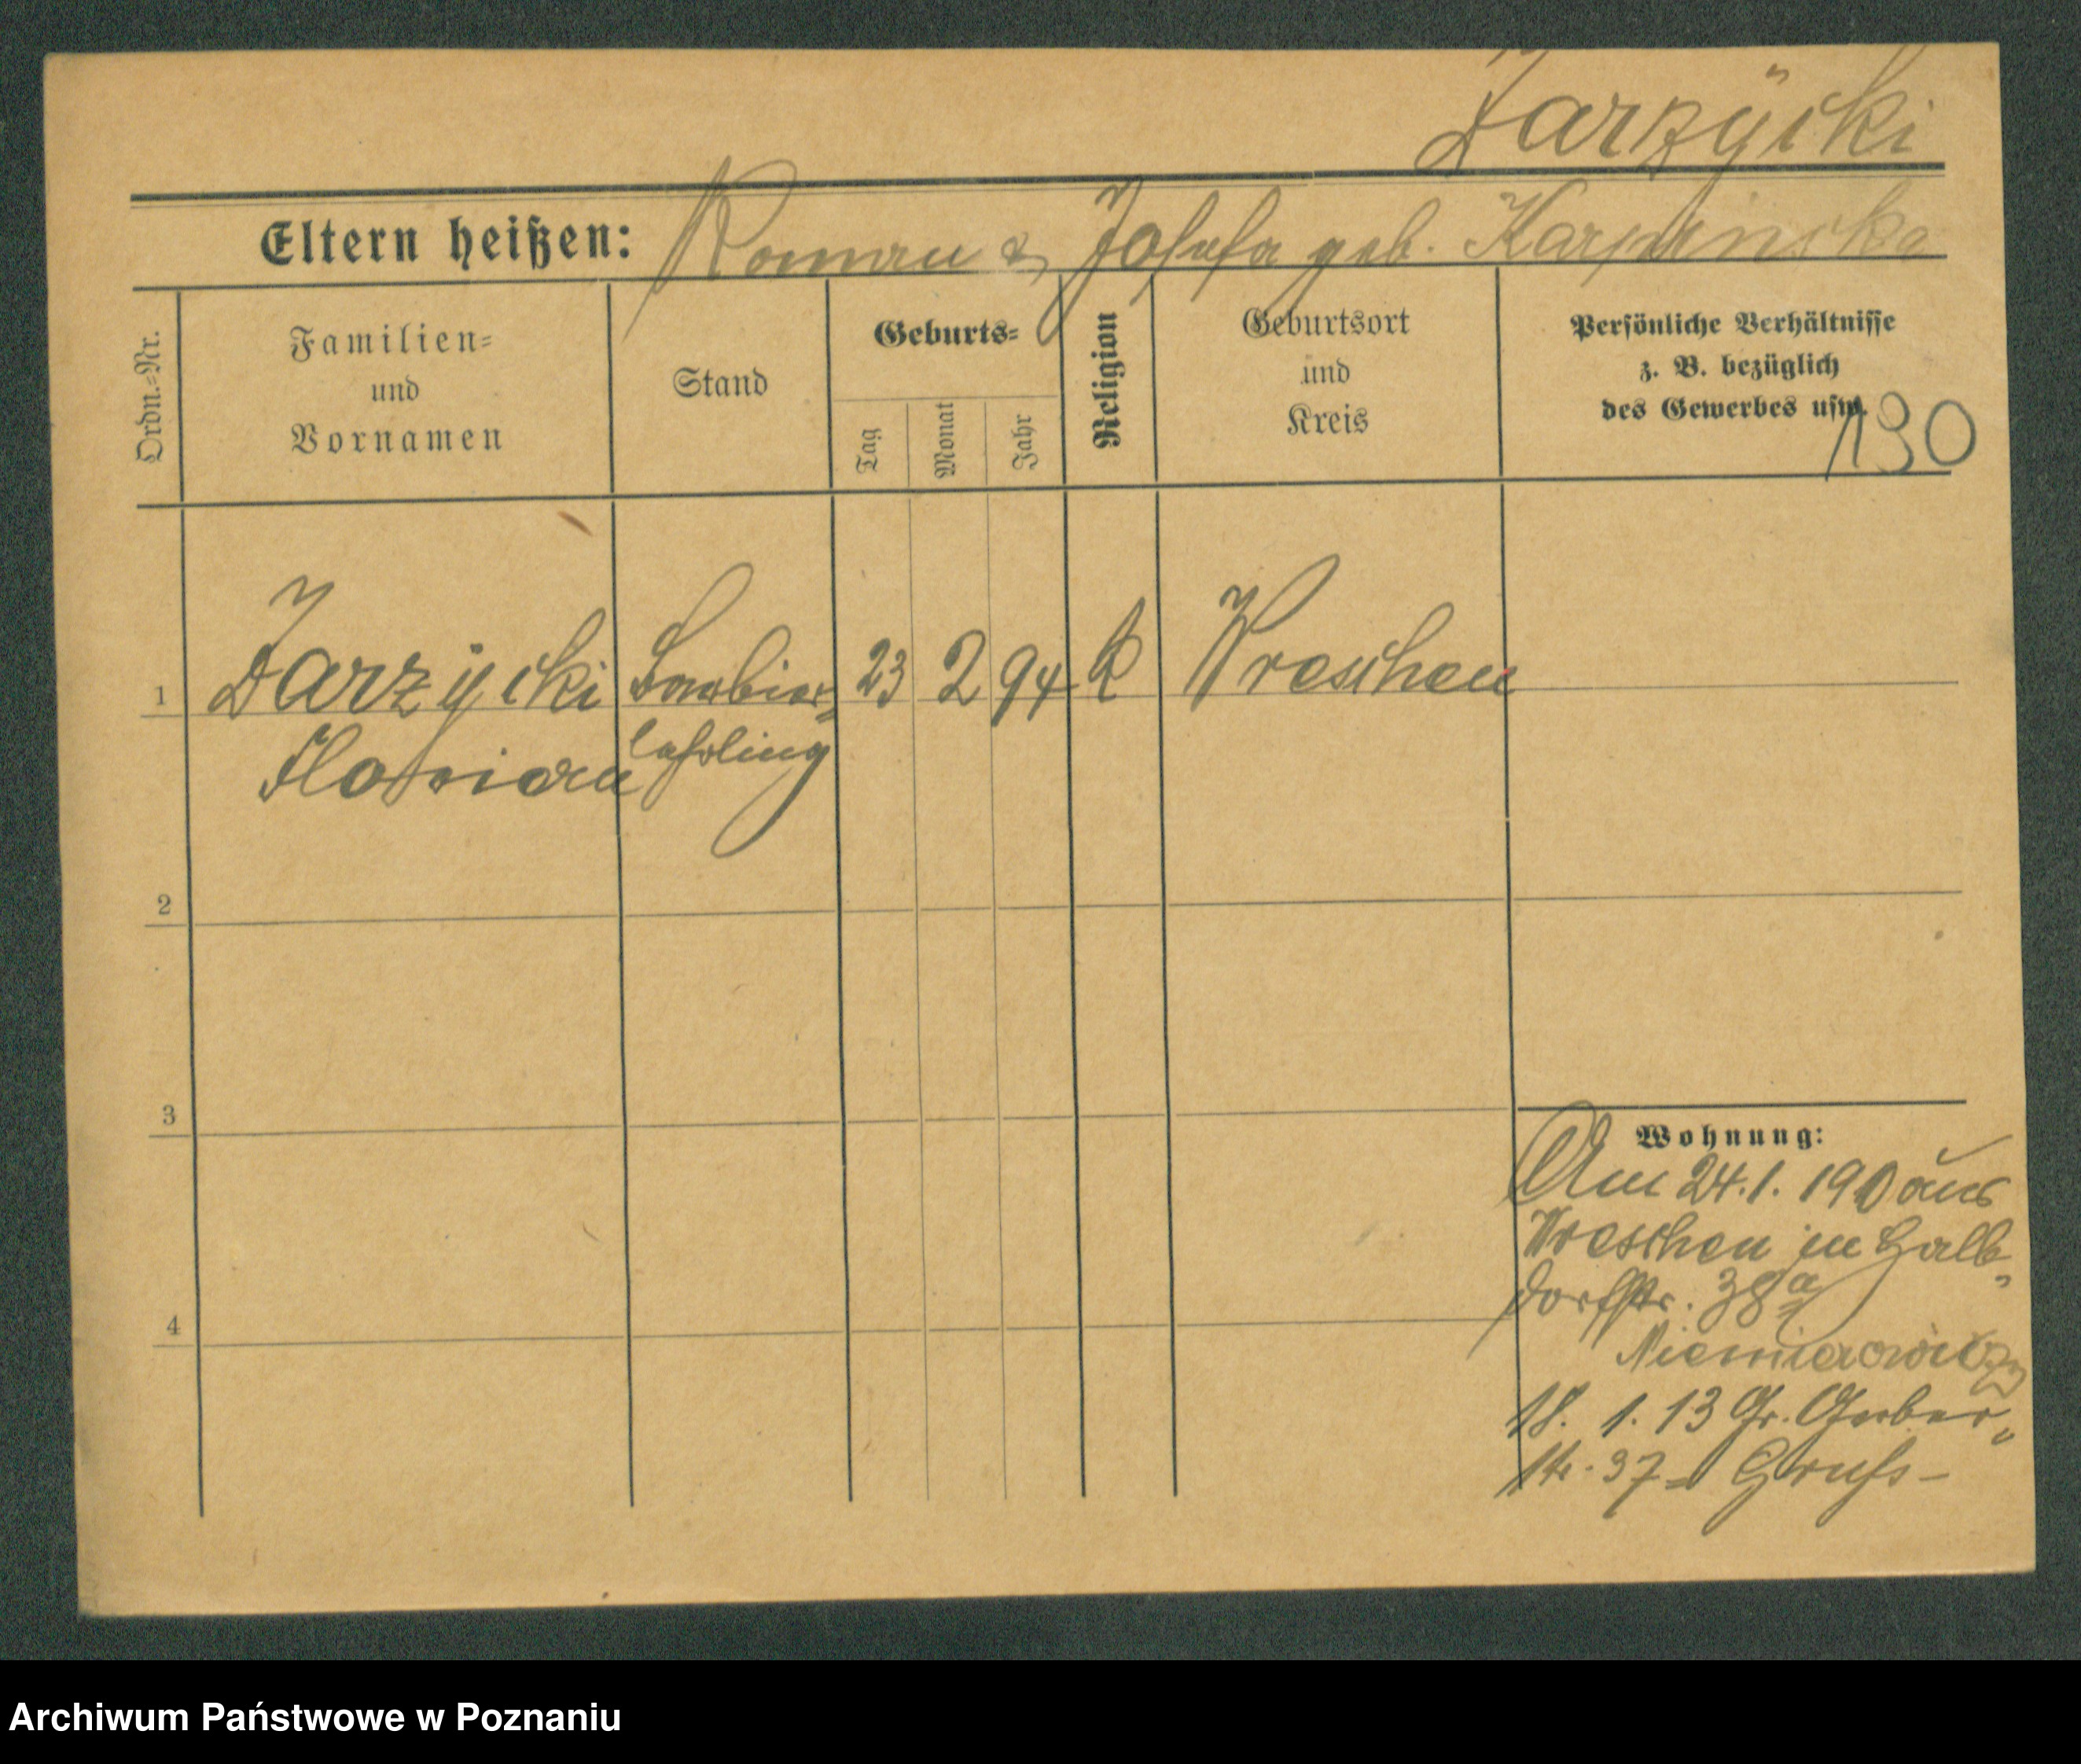 Jarzÿcki
Eltern heißen: Roman & Josefa geb. Karpinska
Ordn.-Nr.
Familien-
und
Vornamen
Stand
Geburts-
Tag
Monat
Jahr
Religion
Geburtsort
und
Kreis
Persönliche Verhältnisse
z. B. bezüglich
des Gewerbes usw.
190
1 Jarzycki Barbier- 23 2 94 k Wreschen
Florian lehrling
2
3
4
Wohnung:
Am 24.1.190 aus
Wreschen in Halb-
dorfstr. 38a
Niemierowicz
18. 1. 13 Gr. Gerber-
str. 37
Archiwum Państwowe w Poznaniu